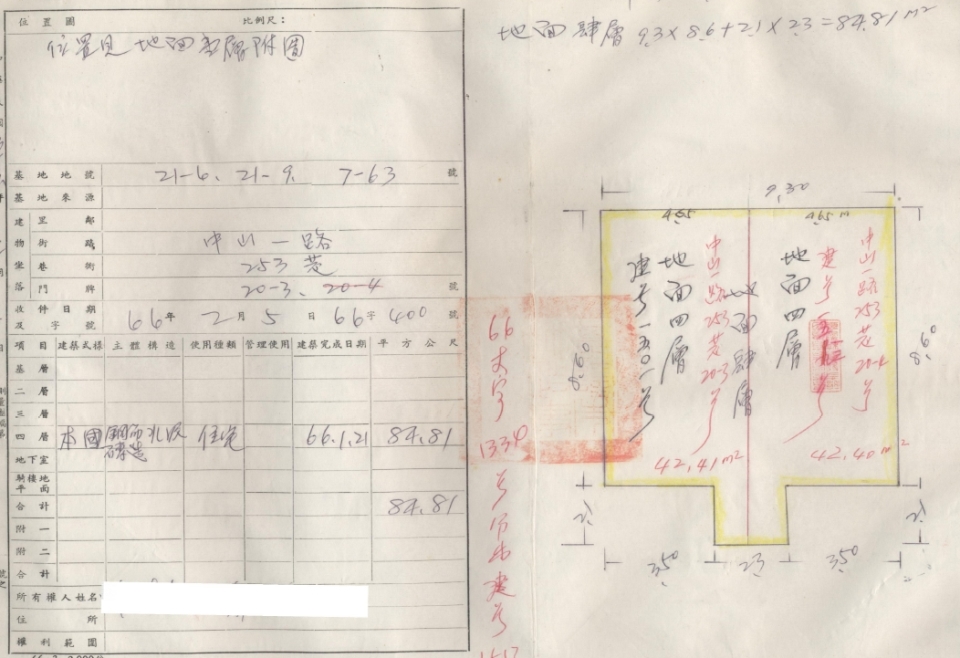 位置圖 比例尺：
位置見地面壹層附圖
基地地號 21-6. 21-9. 7-63 號
基地來源
建物坐落
里鄰
街路 中山一路
巷衖 253巷
門牌 20-3. 20-4 號
收件日期及字號 66年2月5日66字400號
項目 建築式樣 主體構造 使用種類 管理使用 建築完成日期 平方公尺
基層
二層
三層
四層 本國 鋼筋水泥磚造 住宅 66.1.21 84.81
地下室
騎樓地平面
合計 84.81
附一
附二
合計
所有權人姓名
住所
權利範圍
地面肆層 9.3×8.6+2.1×2.3=84.81m²
9.30
4.65
4.65m
8.60
8.60
建號一五〇一號
地面四層
中山一路253巷20-3号
地面肆層
地面四層
建号
中山一路253巷20-4号
42.41m²
42.40m²
2.1
2.1
3.50
2.3
3.50
66
字
1334
号
建号